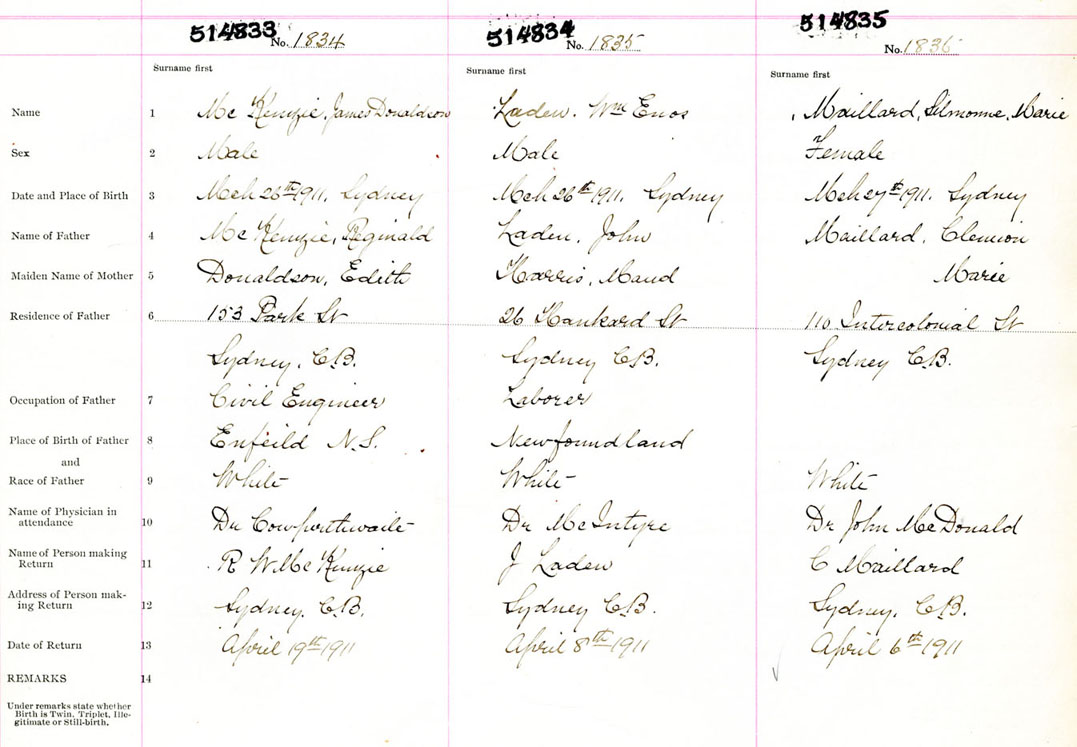 514833 514834 514835
No. 1834 No. 1835 No. 1836
Surname first Surname first Surname first
Name 1 Mc Kenzie, James Donaldson Laden. Wm Enos Maillard, Marie
Sex 2 Male Male Female
Date and Place of Birth 3 Mch 26th 1911, Sydney Mch 26th 1911, Sydney Mch 27th 1911, Sydney
Name of Father 4 Mc Kenzie, Reginald Laden, John Maillard,
Maiden Name of Mother 5 Donaldson, Edith Harris, Maud Marie
Residence of Father 6 153 Park St 26 Hankard St 110 Intercolonial St
Sydney, C.B. Sydney C.B. Sydney C.B.
Occupation of Father 7 Civil Engineer Laborer
Place of Birth of Father 8 Enfeild N.S. Newfoundland
and
Race of Father 9 White White White
Name of Physician in
attendance 10 Dr Cowperthwaite Dr McIntyre Dr John McDonald
Name of Person making
Return 11 R W Mc Kenzie J Laden C Maillard
Address of Person mak-
ing Return 12 Sydney, C.B. Sydney C.B. Sydney, C.B.
Date of Return 13 April 19th 1911 April 8th 1911 April 6th 1911
REMARKS 14
Under remarks state whether
Birth is Twin, Triplet, Ille-
gitimate or Still-birth.